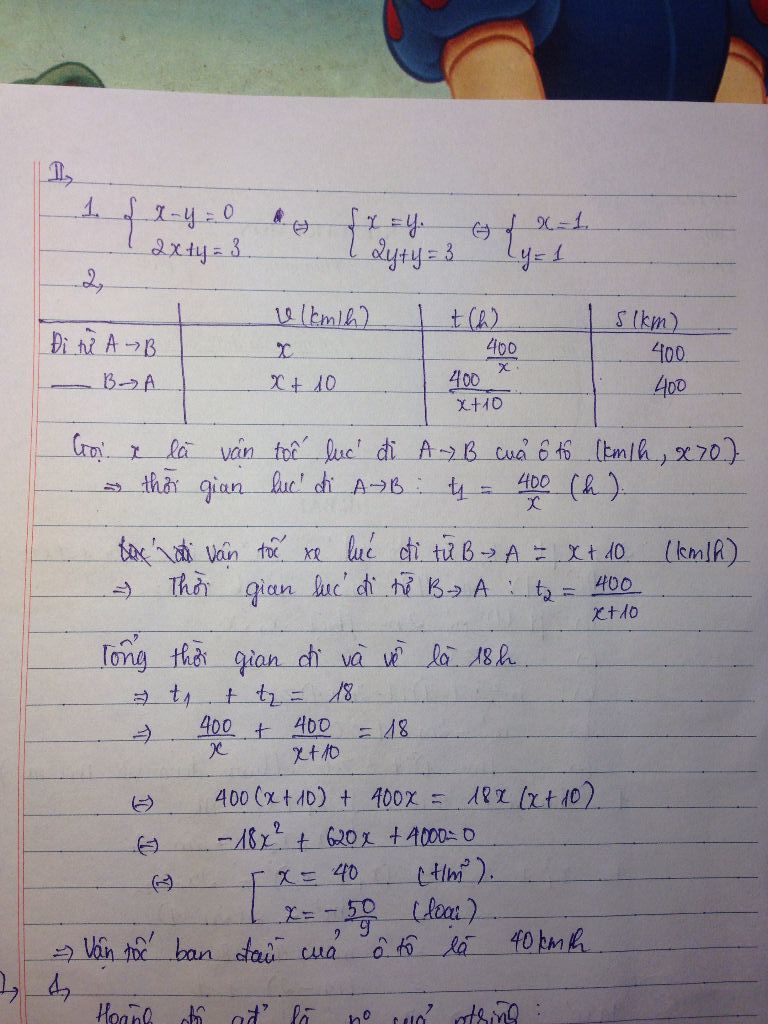 II,
1. { x - y = 0 (=) { x = y. (=) { x = 1.
2x + y = 3 2y + y = 3 y = 1
2,
v (km/h) t (h) S (km)
Đi từ A → B x 400/x 400
— B → A x + 10 400/(x+10) 400
Gọi x là vận tốc lúc đi A → B cuả ô tô (km/h, x > 0).
⇒ thời gian lúc đi A → B : t1 = 400/x (h).
vận tốc xe lúc đi từ B → A = x + 10 (km/h)
⇒ Thời gian lúc đi từ B → A : t2 = 400/(x+10)
Tổng thời gian đi và về là 18h
⇒ t1 + t2 = 18
⇒ 400/x + 400/(x+10) = 18
(=) 400(x+10) + 400x = 18x (x+10)
(=) -18x² + 620x + 4000 = 0
(=) [ x = 40 (t/m).
x = - 50/9 (loại)
⇒ Vận tốc ban đầu cuả ô tô là 40 km/h
1,
Hoành độ là n⁰ cuả :